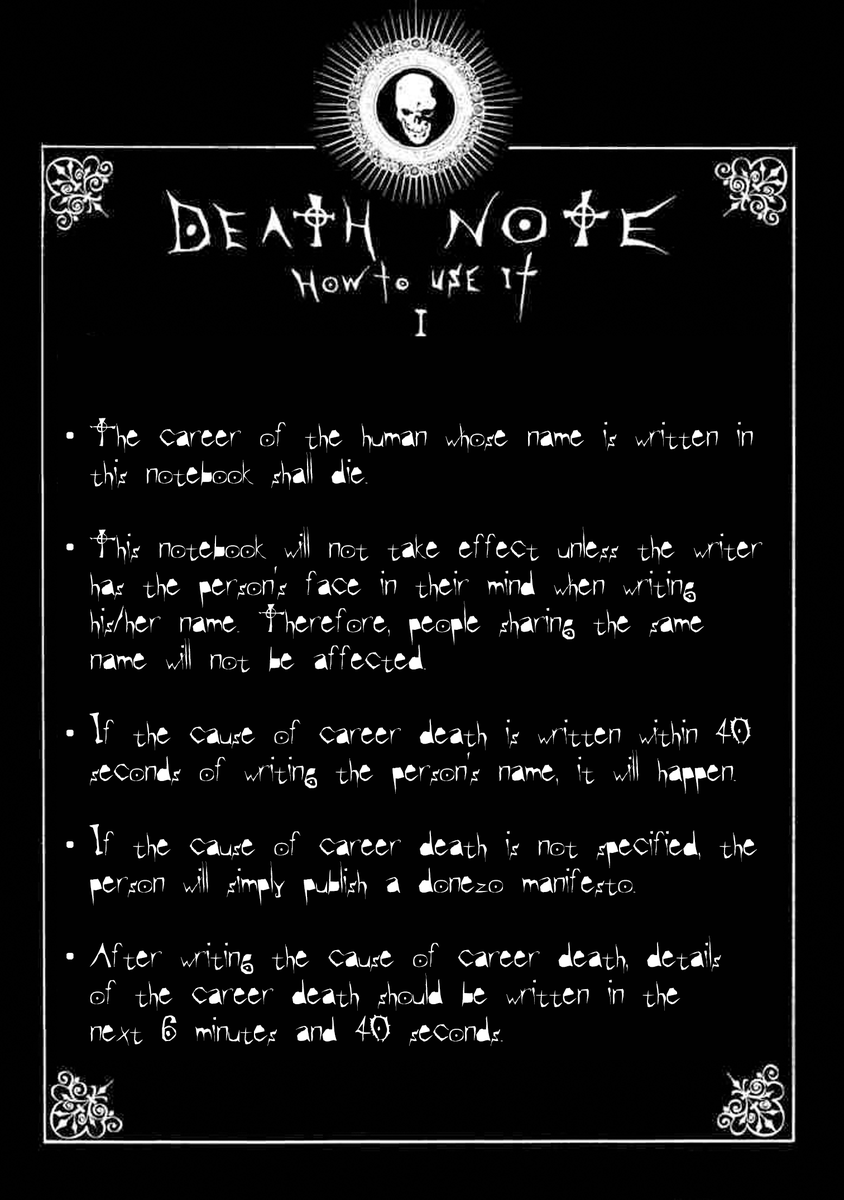 DEATH NOTE
How to use it
I
• The career of the human whose name is written in
this notebook shall die.
• This notebook will not take effect unless the writer
has the person's face in their mind when writing
his/her name. Therefore, people sharing the same
name will not be affected.
• If the cause of career death is written within 40
seconds of writing the person's name, it will happen.
• If the cause of career death is not specified, the
person will simply publish a donezo manifesto.
• After writing the cause of career death, details
of the career death should be written in the
next 6 minutes and 40 seconds.